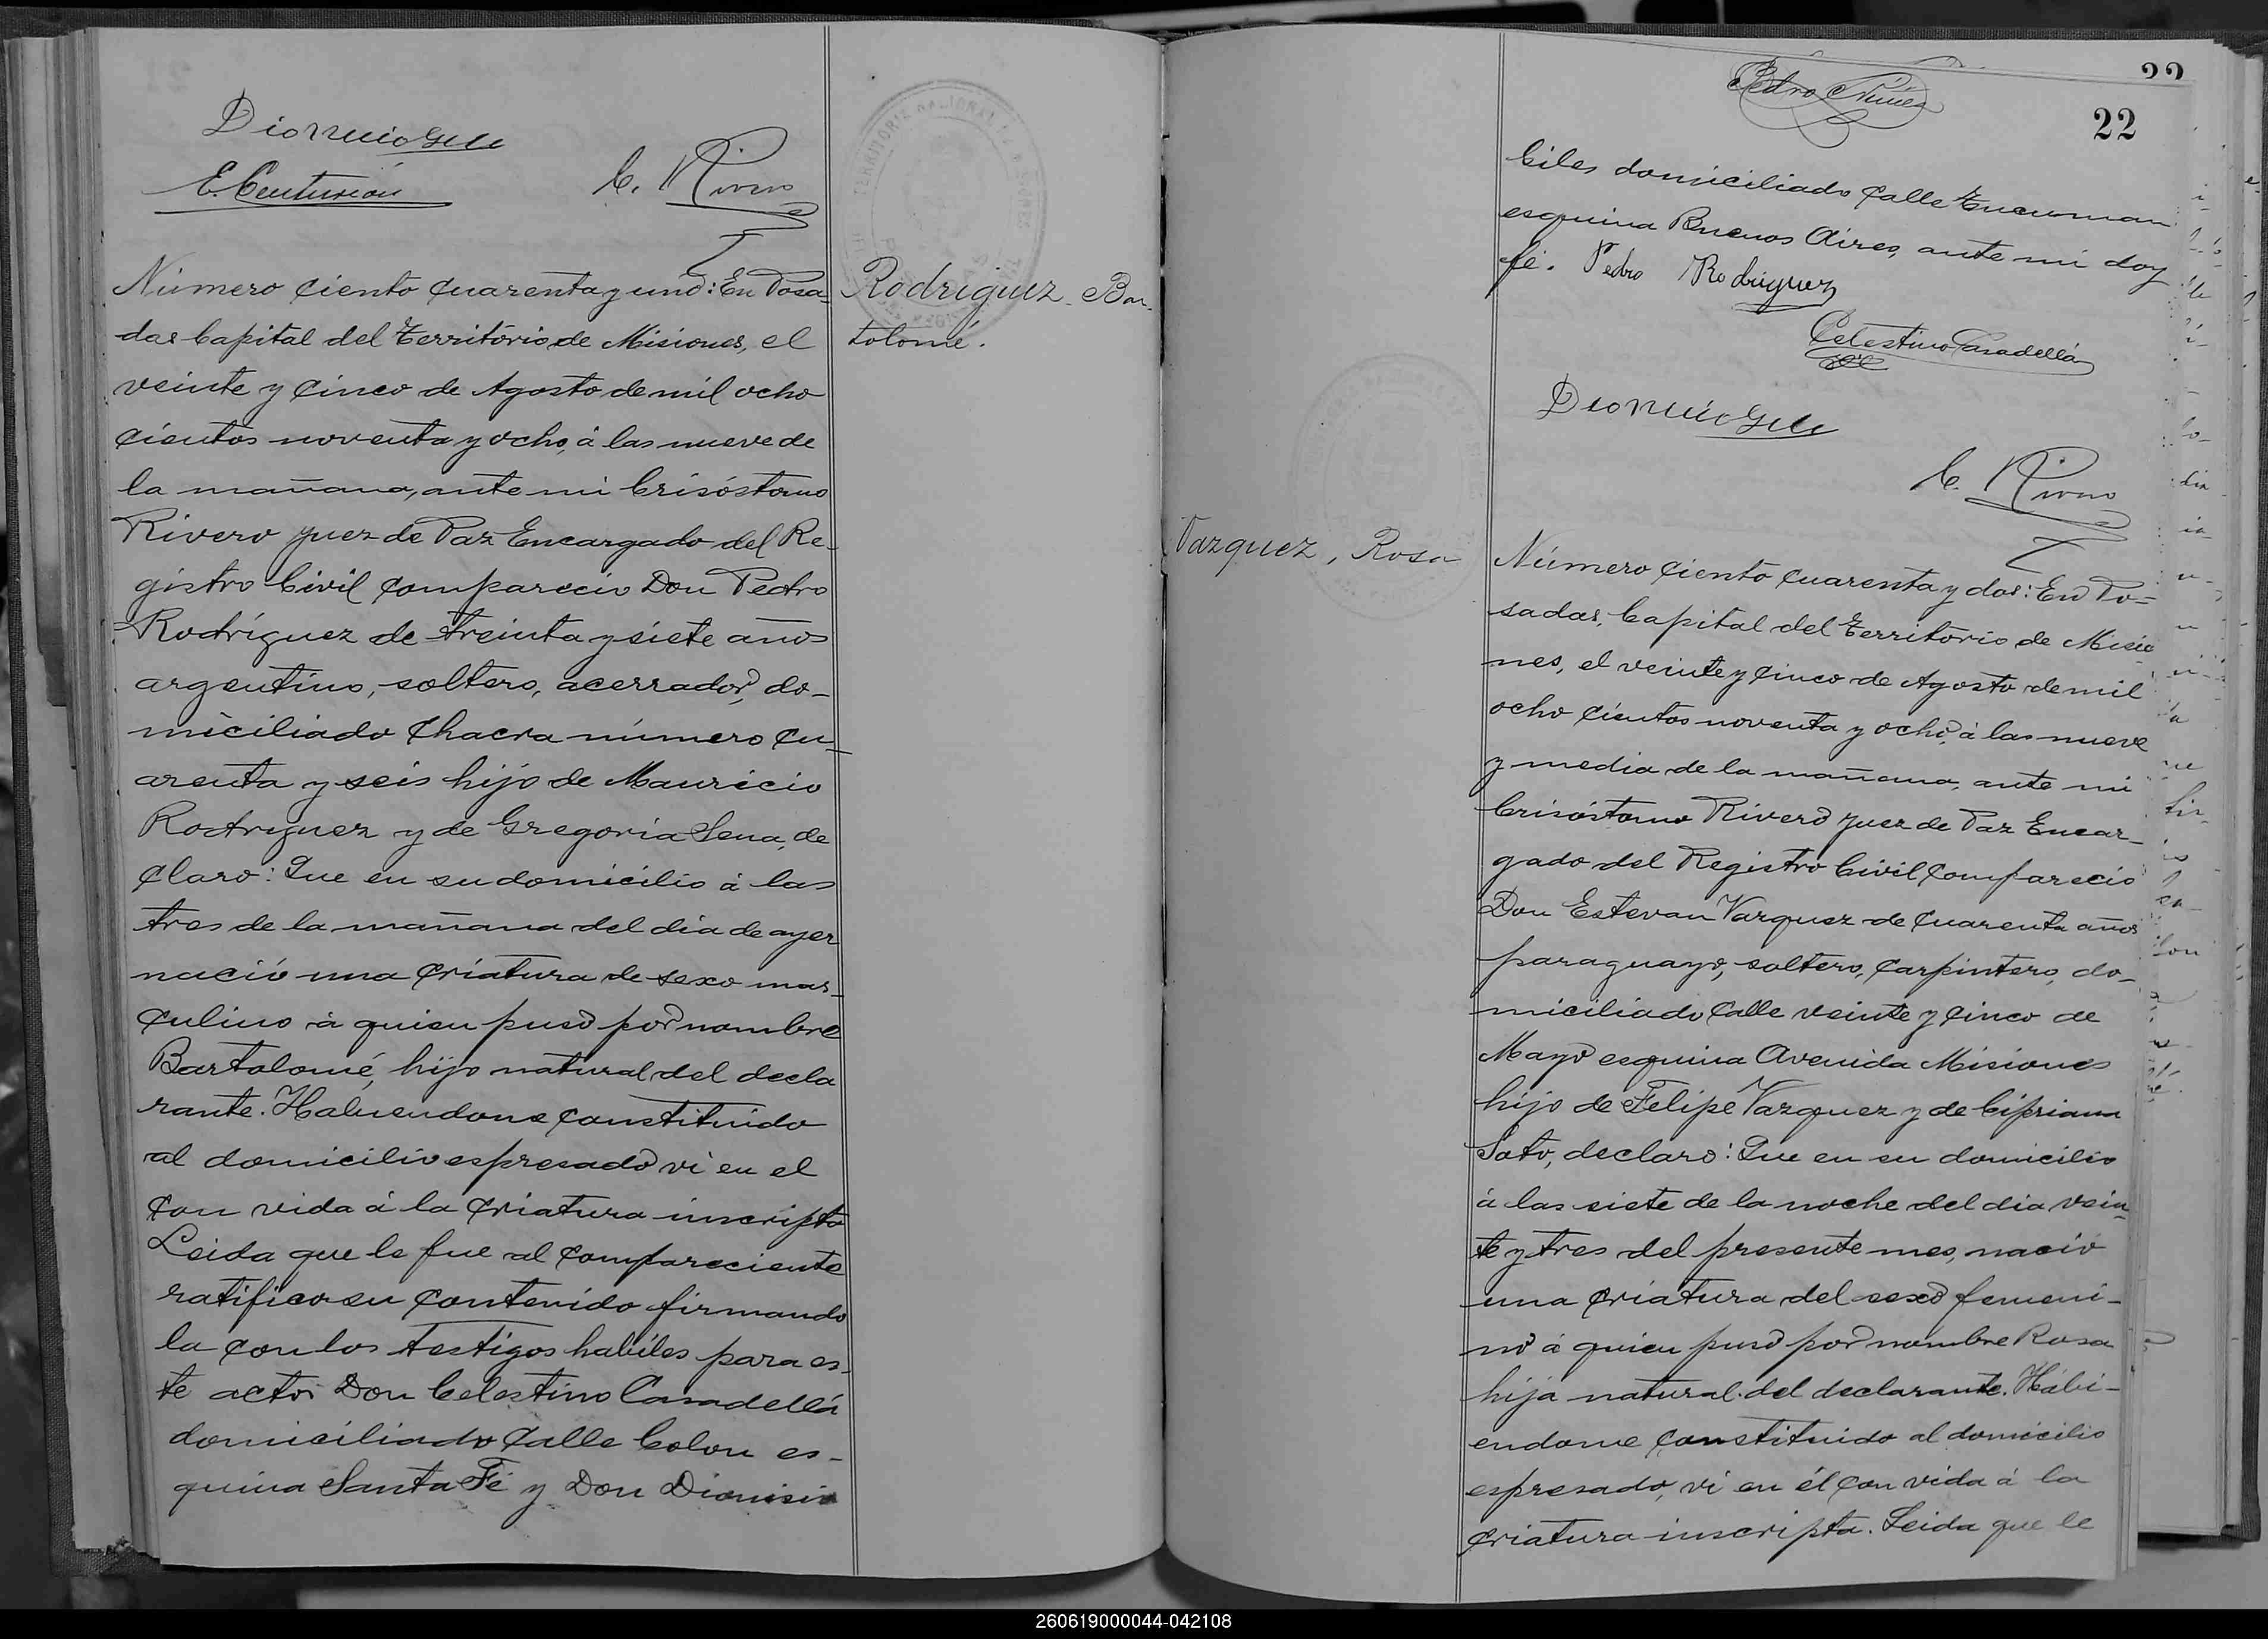 Dionicio Gili
E. Centurión C. Rivero
Número ciento cuarenta y uno: En Posa-
das Capital del Territorio de Misiones, el
veinte y cinco de Agosto de mil ocho
cientos noventa y ocho, á las nueve de
la mañana, ante mi Crisóstomo
Rivero Juez de Paz Encargado del Re-
gistro Civil compareció Don Pedro
Rodríguez de treinta y siete años
argentino, soltero, acerrador, do-
miciliado Chacra número cu-
arenta y seis hijo de Mauricio
Rodriguez y de Gregoria Sena, de
claro: Que en su domicilio á las
tres de la mañana del dia de ayer
nació una criatura de sexo mas-
culino á quien puso por nombre
Bartolomé, hijo natural del decla
rante. Habiendome constituido
al domicilio espresado vi en el
con vida á la criatura inscripta
Leida que le fue al compareciente
ratifico su contenido firmando
la con los testigos habiles para es-
te acto Don Celestino Casadellá
domiciliado Calle Colon es-
quina Santa Fé y Don Dionisio
Rodriguez Bar-
tolomé.
22
Pedro Nuñez
22
Ciles domiciliado Calle Tucuman
esquina Buenos Aires, ante mi doy
fé. Pedro Rodriguez
Celestino Casadellá
Dionicio Gili
C. Rivero
Vazquez, Rosa
Número ciento cuarenta y dos: En Po-
sadas, Capital del Territorio de Misio
nes, el veinte y cinco de Agosto de mil
ocho cientos noventa y ocho, á las nueve
y media de la mañana, ante mi
Crisóstomo Rivero Juez de Paz Encar-
gado del Registro Civil compareció
Don Estevan Vazquez de cuarenta años
paraguayo, soltero, carpintero, do-
miciliado Calle veinte y cinco de
Mayo esquina Avenida Misiones
hijo de Felipe Vazquez y de Cipriana
Soto, declaro: Que en su domicilio
á las siete de la noche del dia vein-
te y tres del presente mes, nació
una criatura del sexo femeni-
no á quien puso por nombre Rosa
hija natural del declarante. Habi-
endome constituido al domicilio
espresado, vi en él con vida á la
criatura inscripta. Leida que le
260619000044-042108